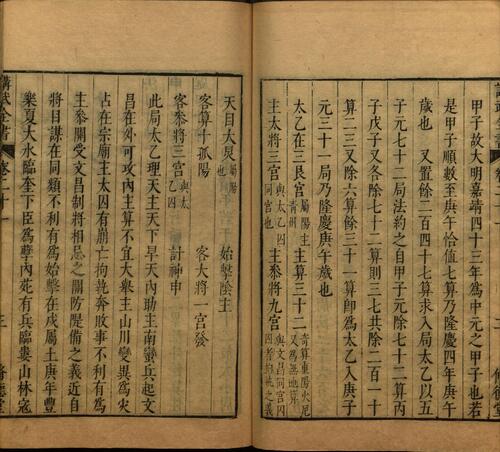 甲子故大明嘉靖四十三年為中元之甲子也若
是甲子順數至庚午恰值七算乃隆慶四年庚午
歲也又置餘二百四十七算求入局大乙以五
子元七十二局法約之自甲子元除七十二算丙
子戊子又各除七十二算則三七共除二百一十
算二三又除六算餘三十一算卽為太乙入庚子
元三十一局乃隆慶庚午歲也
太乙在三艮宮屬陽主青州主算三十二
主大將三宮與太乙囚同宮也主參將九宮
天目大炅屬陽也始擊陰主
客算十孤陽客大將一宮發
客參將三宮與太乙囚計神申
此局太乙理天主天下旱天內助主南蠻兵起文
昌在外可攻內主算不宜大衆主山川變異為火
占在宗廟主太囚有崩亡拘執奔敗事不利有為
主參關受文昌制將相忌之關防隄備之義近自
將目謀在同類不利有為始擊在戌屬土庚午年
樂夏大水臨奎下臣為孽內死有兵臨婁山林寇
講武全書
卷二十一
三